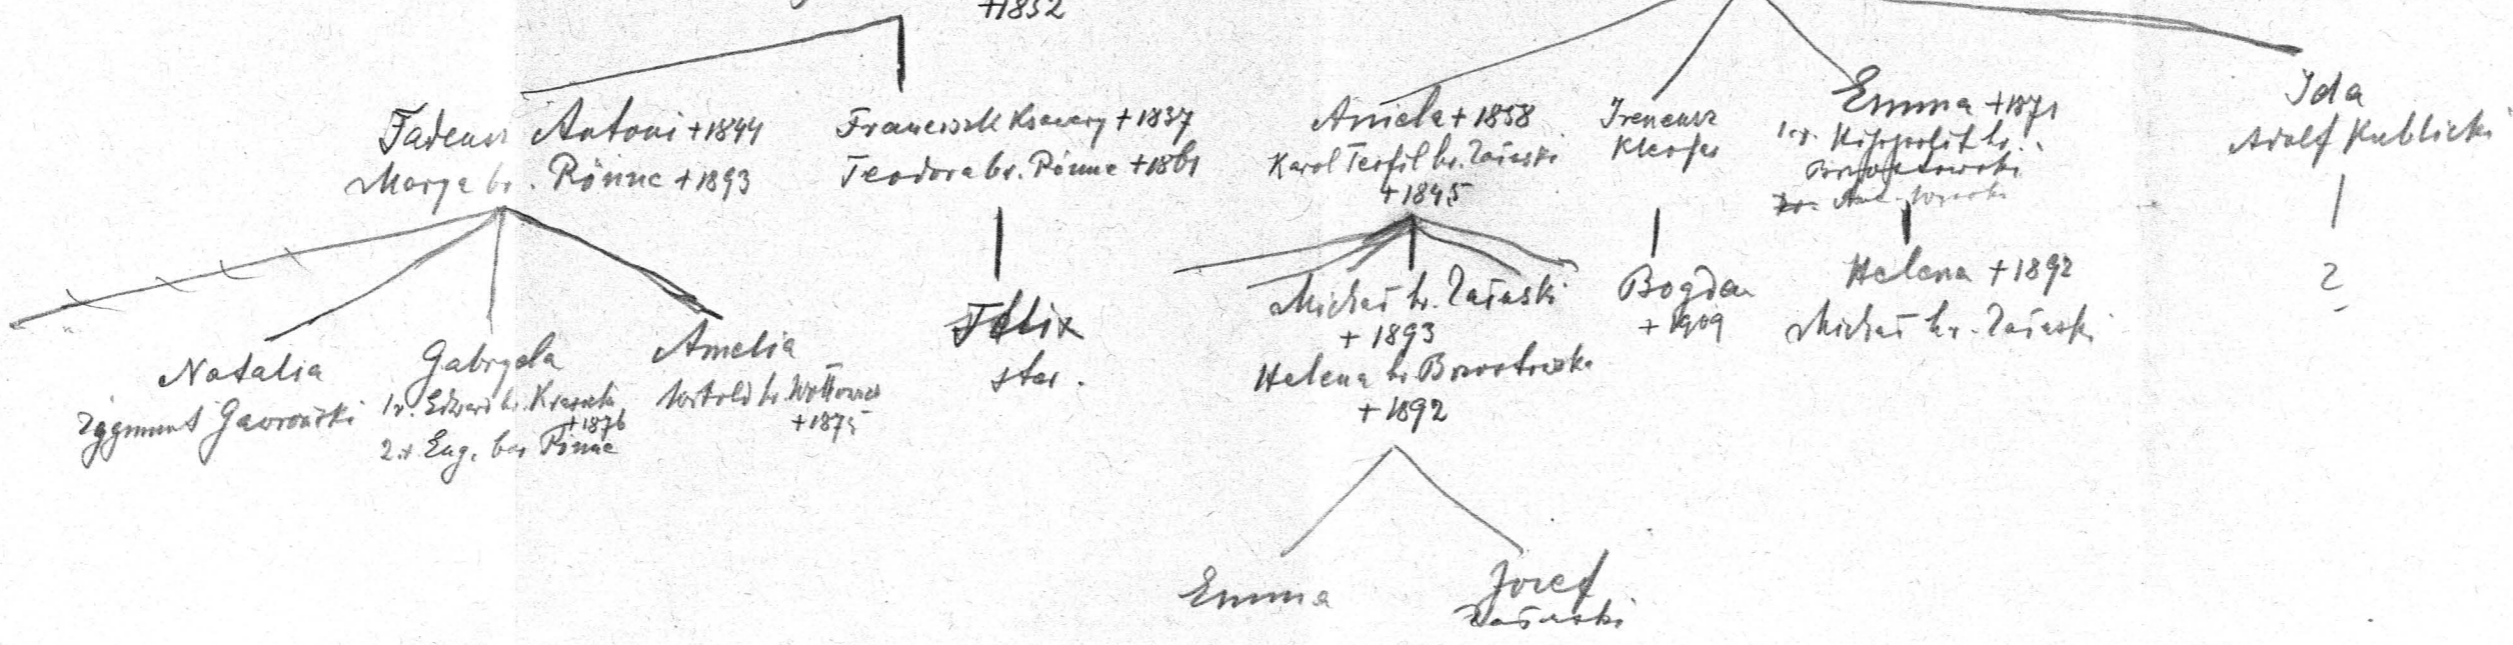 +1852
Tadeusz Antoni +1844
Marya br. Rönne +1893
Franciszek Ksawery +1837
Teodora br. Rönne +1861
Aniela +1858
Karol Teofil hr. Załuski
+1845
Ireneusz
Kleofas
Emma +1871
1v. Hippolit hr.
Ida
Adolf Kublicki
Natalia
Zygmunt Gawroński
Gabryela
1v. Edward hr. Krasicki
+1876
2v Eug. bar Rönne
Amelia
Witold hr.
+1875
Felix
ster.
Michał hr. Załuski
+1893
Helena hr Brzostowska
+1892
Bogdan
+1909
Helena +1892
Michał hr. Załuski
?
Emma
Józef
Załuski